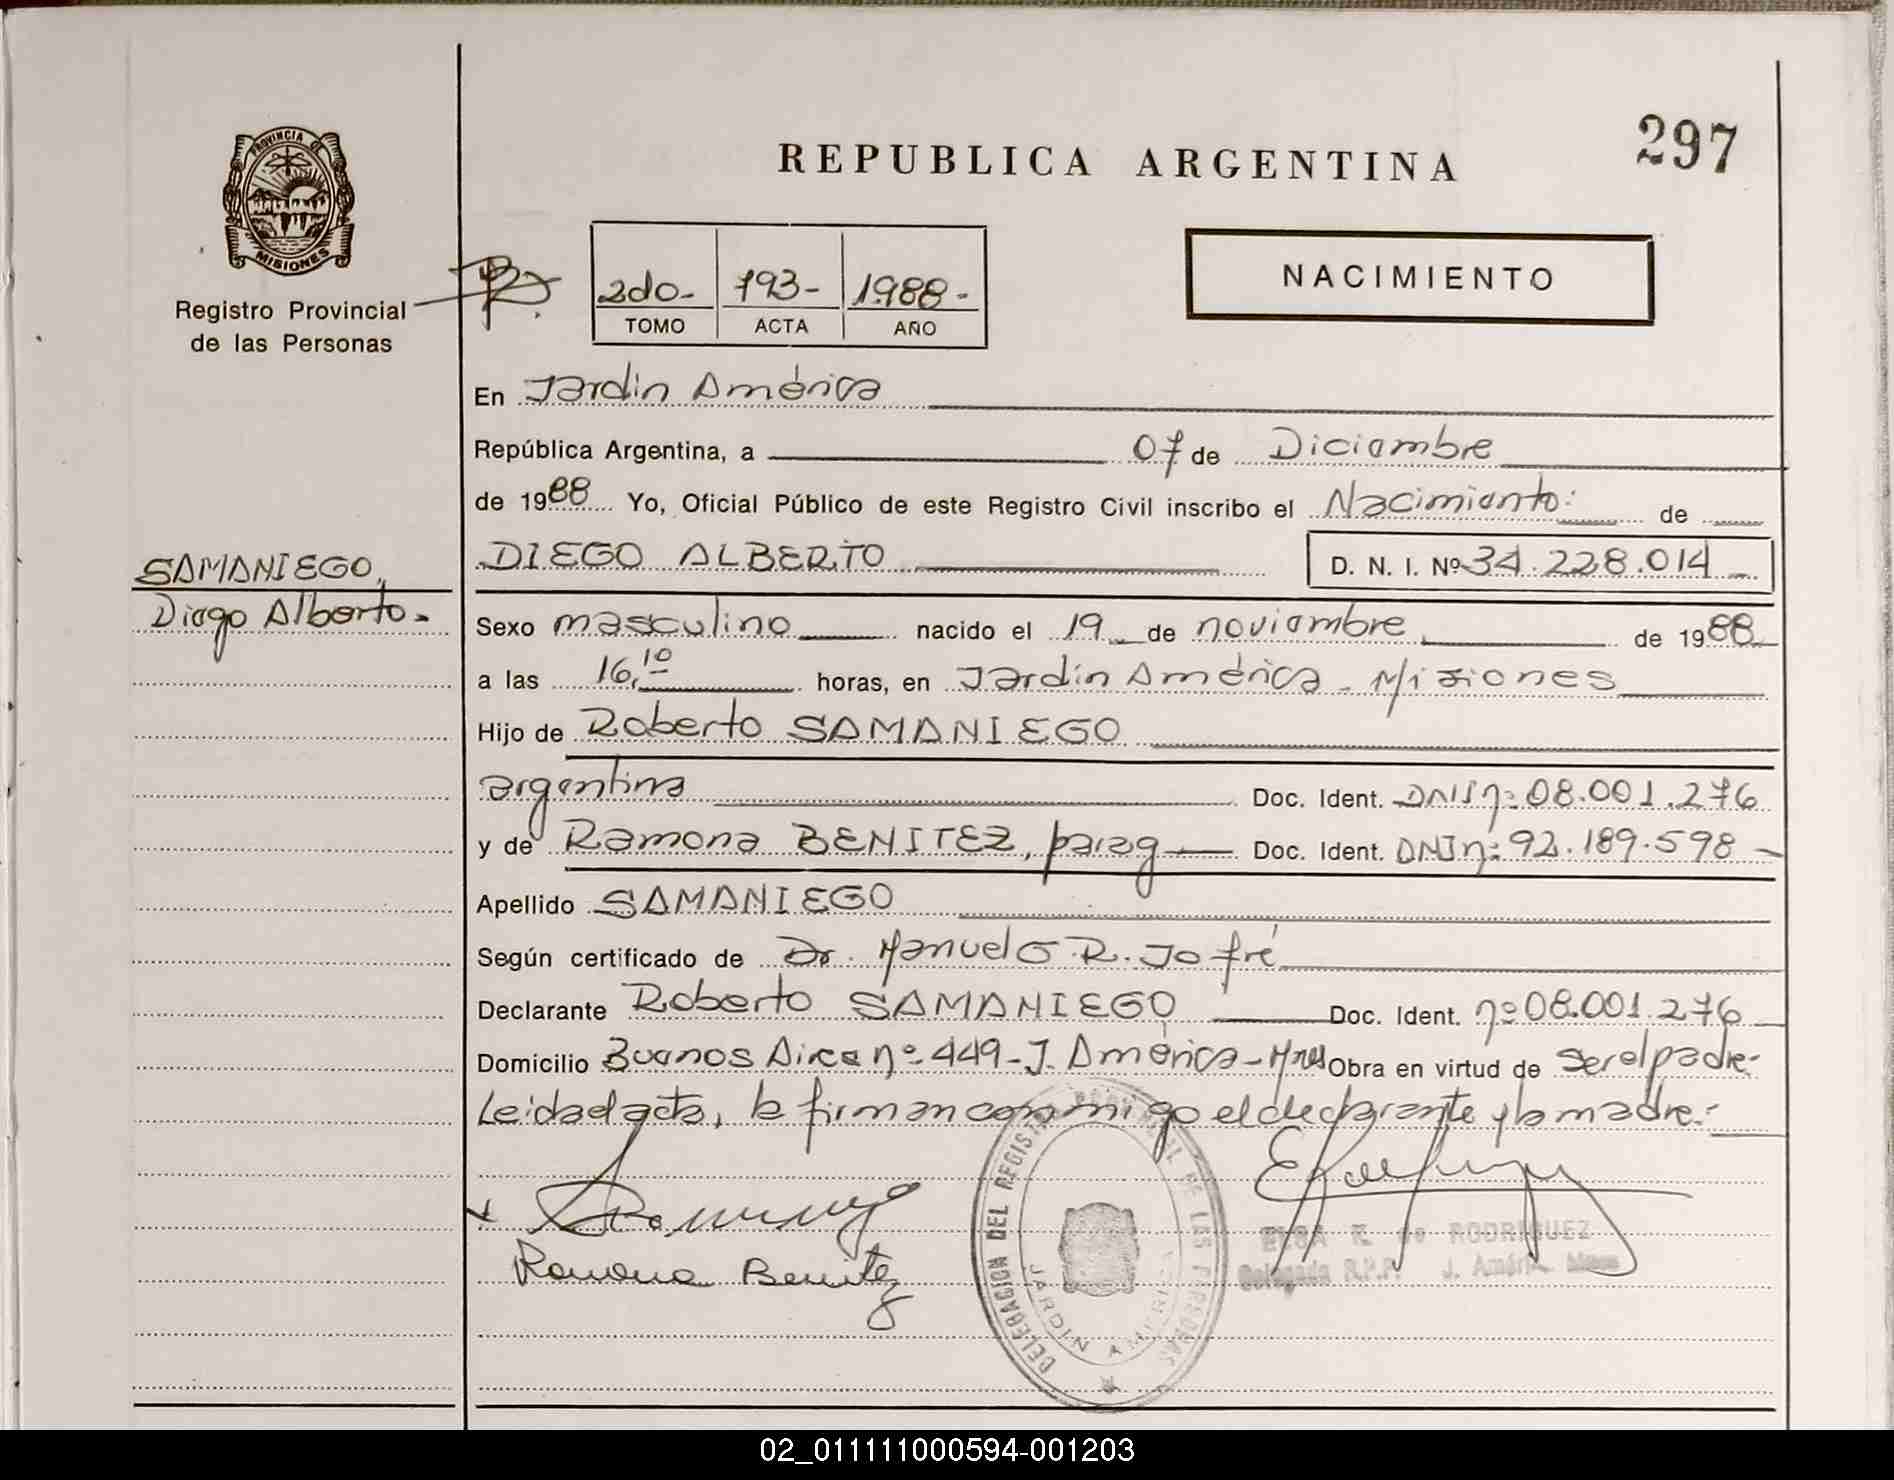 297
REPUBLICA ARGENTINA
PROVINCIA DE
MISIONES
Registro Provincial
de las Personas
2do- 793- 1988-
TOMO ACTA AÑO
NACIMIENTO
En Jardín América
República Argentina, a 07 de Diciembre
de 1988 Yo, Oficial Público de este Registro Civil inscribo el Nacimiento: de
DIEGO ALBERTO D. N. I. Nº 34.228.014
SAMANIEGO,
Diego Alberto.-
Sexo masculino nacido el 19 de noviembre de 1988
a las 16,10 horas, en Jardín América - Misiones
Hijo de Roberto SAMANIEGO
argentina Doc. Ident. DNI nº 08.001.276
y de Ramona BENITEZ, parag Doc. Ident. DNI nº 92.189.598
Apellido SAMANIEGO
Según certificado de Dr. Manuel O. R. Jofré
Declarante Roberto SAMANIEGO Doc. Ident. nº 08.001.276
Domicilio Buenos Aires nº 449 - J. América - Mnes Obra en virtud de ser el padre.-
Leída el acta, la firman conmigo el declarante y la madre.-
Ramona Benitez
DELEGACION DEL REGISTRO PROVINCIAL DE LAS PERSONAS
JARDIN AMERICA
ELSA K. de RODRIGUEZ
Delegada R.P.P. J. América
02_011111000594-001203